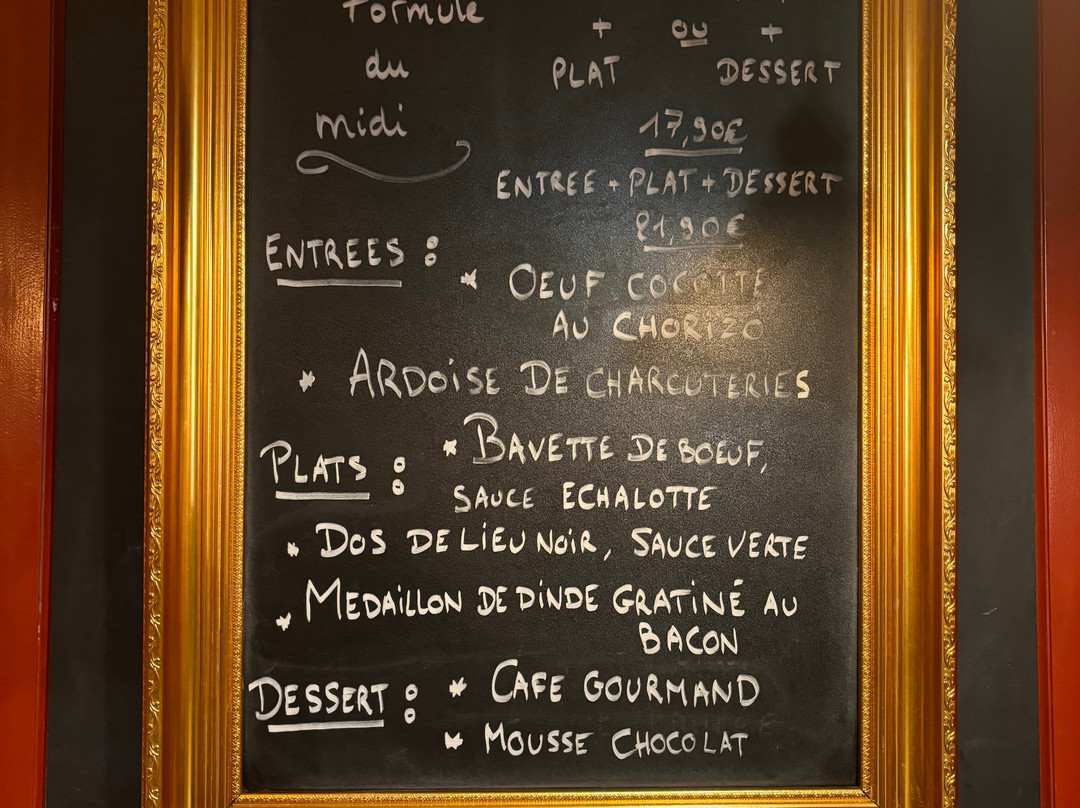 Formule
du
midi
+ ou +
PLAT DESSERT
17,90€
ENTREE + PLAT + DESSERT
21,90€
ENTREES :
* OEUF COCOTTE
AU CHORIZO
* ARDOISE DE CHARCUTERIES
PLATS :
* BAVETTE DE BOEUF,
SAUCE ECHALOTTE
* DOS DE LIEU NOIR, SAUCE VERTE
* MEDAILLON DE DINDE GRATINÉ AU
BACON
DESSERT : * CAFE GOURMAND
* MOUSSE CHOCOLAT